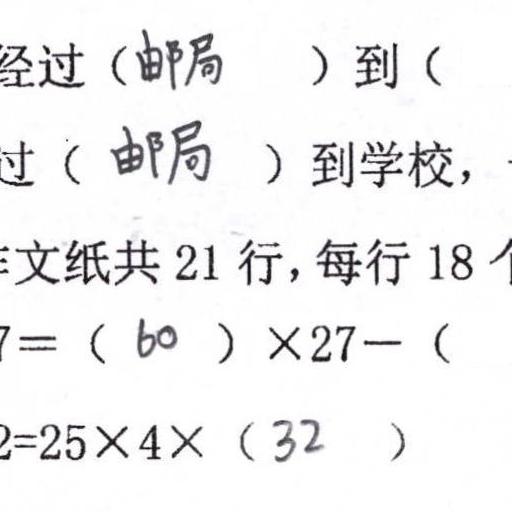 经过（邮局　）到（
过（邮局）到学校，
文纸共 21 行，每行 18 个
7＝（60）×27－（
2=25×4×（32　）